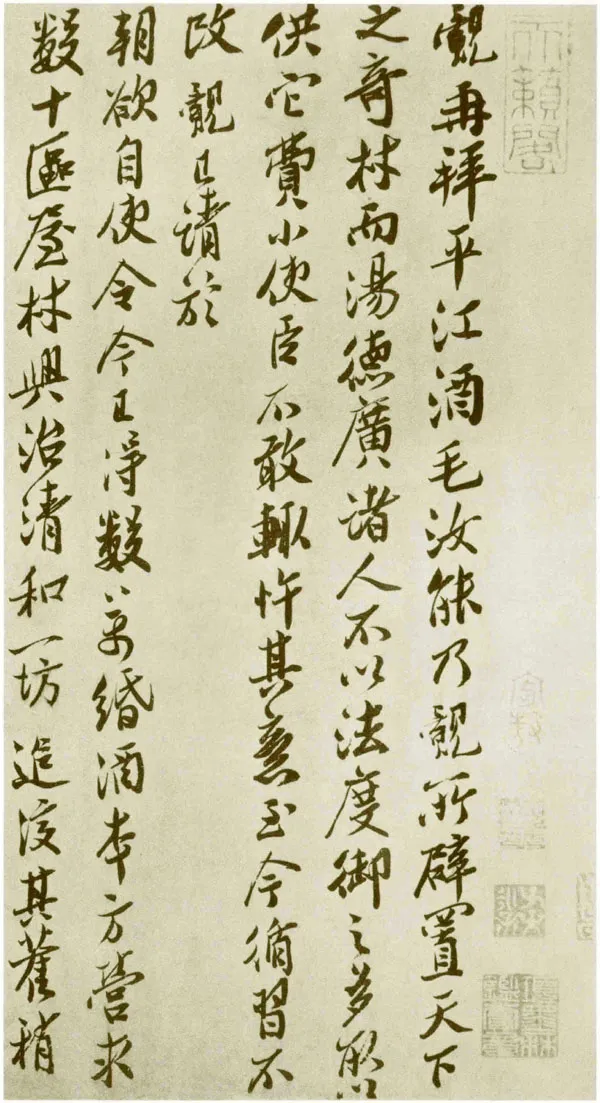 天籟閣
覿再拜平江酒毛汝能乃覿所辟置天下
之奇材而湯德廣諸人不以法度御之多
供它費小使臣不敢輒忤其意至今循習不
改覿已請於
朝欲自使令今已得數萬緡酒本方營求
數十區屋材興治清和一坊追復其舊稍